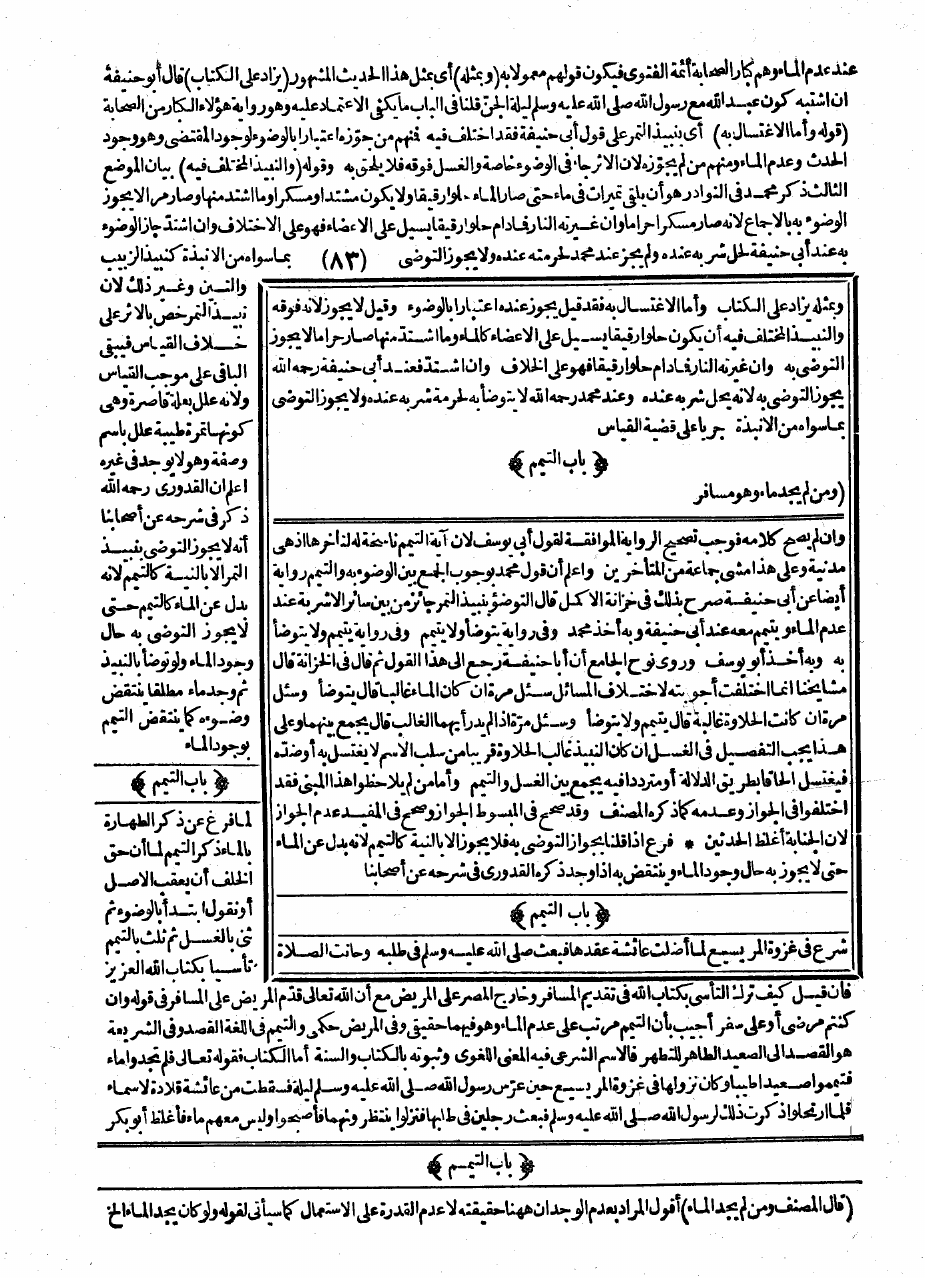 عند عدم الماء وهم كبار الصحابة أئمة الفتوى فيكون قولهم معمولا به (وبمثله) أى بمثل هذا الحديث المشهور (يزاد على الكتاب) قال أبو حنيفة
ان اشتبه كون عبد الله مع رسول الله صلى الله عليه وسلم ليلة الجن قلنا فى الباب ما يكفى الاعتماد عليه وهو رواية هؤلاء الكبار من الصحابة
(قوله وأما الاغتسال به) أى بنبيذ التمر على قول أبى حنيفة فقد اختلف فيه فمنهم من جوّزه اعتبارا بالوضوء لوجود المقتضى وهو وجود
الحدث وعدم الماء ومنهم من لم يجوّزه لان الاثر جاء فى الوضوء خاصة والغسل فوقه فلا يلحق به وقوله (والنبيذ المختلف فيه) بيان الموضع
الثالث ذكر محمد فى النوادر هو أن يلقى تميرات فى ماء حتى صار الماء حلوا رقيقا ولا يكون مشتدا ومسكرا وما اشتد منها وصار مرا لا يجوز
الوضوء به بالاجماع لانه صار مسكرا حراما وان غيرته النار فادام حلوا رقيقا يسيل على الاعضاء فهو على الاختلاف وان اشتد جاز الوضوء
به عند أبى حنيفة لحل شربه عنده ولم يجز عند محمد لحرمته عنده ولا يجوز التوضى (٨٣) بما سواه من الانبذة كنبيذ الزبيب
والتين وغير ذلك لان
نبيذ التمر خص بالاثر على
خلاف القياس فيبقى
الباقى على موجب القياس
ولانه علل بعلة قاصرة وهى
كونها تمرة طيبة علل باسم
وصفة وهو لا يوجد فى غيره
اعلم ان القدورى رحمه الله
ذكر فى شرحه عن أصحابنا
أنه لا يجوز التوضى بنبيذ
التمر الا بالنية كالتيمم لانه
بدل عن الماء كالتيمم حتى
لا يجوز التوضى به حال
وجود الماء ولو توضأ بالنبيذ
ثم وجد ماء مطلقا ينتقض
وضوءه كما ينتقض التيمم
بوجود الماء
﴿ باب التيمم ﴾
لما فرغ عن ذكر الطهارة
بالماء ذكر التيمم لما أن حق
الخلف أن يعقب الاصل
أو نقول ابتدأ بالوضوء ثم
ثنى بالغسل ثم ثلث بالتيمم
تأسيا بكتاب الله العزيز
وبمثله يزاد على الكتاب وأما الاغتسال به فقد قيل يجوز عنده اعتبارا بالوضوء وقيل لا يجوز لانه فوقه
والنبيذ المختلف فيه أن يكون حلوا رقيقا يسيل على الاعضاء كالماء وما اشتد منها صار حراما لا يجوز
التوضى به وان غيرته النار فادام حلوا رقيقا فهو على الخلاف وان اشتد فعند أبى حنيفة رحمه الله
يجوز التوضى به لانه يحل شربه عنده وعند محمد رحمه الله لا يتوضأ به لحرمة شربه عنده ولا يجوز التوضى
بما سواه من الانبذة جريا على قضية القياس
﴿ باب التيمم ﴾
(ومن لم يجد ماء وهو مسافر
وان لم يصح كلامه فوجب تصحيح الرواية الموافقة لقول أبى يوسف لان آية التيمم ناسخة له لتأخرها اذ هى
مدنية وعلى هذا مشى جماعة من المتأخرين واعلم أن قول محمد بوجوب الجمع بين الوضوء به والتيمم رواية
أيضا عن أبى حنيفة صرح بذلك فى خزانة الاكمل قال التوضؤ بنبيذ التمر جائز من بين سائر الاشربة عند
عدم الماء ويتيمم معه عند أبى حنيفة وبه أخذ محمد وفى رواية يتوضأ ولا يتيمم وفى رواية يتيمم ولا يتوضأ
به وبه أخذ أبو يوسف وروى نوح الجامع أن أبا حنيفة رجع الى هذا القول ثم قال فى الخزانة قال
مشايخنا انما اختلفت أجوبته لاختلاف المسائل سئل مرة ان كان الماء غالبا قال يتوضأ وسئل
مرة ان كانت الحلاوة غالبة قال يتيمم ولا يتوضأ وسئل مرة اذا لم يدر أيهما الغالب قال يجمع بينهما وعلى
هذا يجب التفصيل فى الغسل ان كان النبيذ غالب الحلاوة قريبا من سلب الاسم لا يغتسل به أو ضده
فيغتسل الحاقا بطريق الدلالة أو مترددا فيه يجمع بين الغسل والتيمم وأما من لم يلاحظوا هذا المبنى فقد
اختلفوا فى الجواز وعدمه كما ذكره المصنف وقد صحح فى المبسوط الجواز وصحح فى المفيد عدم الجواز
لان الجنابة أغلظ الحدثين * فرع اذا قلنا بجواز التوضى به فلا يجوز الا بالنية كالتيمم لانه بدل عن الماء
حتى لا يجوز به حال وجود الماء وينتقض به اذا وجد ذكره القدورى فى شرحه عن أصحابنا
﴿ باب التيمم ﴾
شرع فى غزوة المريسيع لما أضلت عائشة عقدها فبعث صلى الله عليه وسلم فى طلبه وحانت الصلاة
فان قيل كيف ترك التأسى بكتاب الله فى تقديم المسافر وخارج المصر على المريض مع أن الله تعالى قدّم المريض على المسافر فى قوله وان
كنتم مرضى أو على سفر أجيب بأن التيمم مرتب على عدم الماء وهو فيهما حقيقى وفى المريض حكمى والتيمم فى اللغة القصد وفى الشريعة
هو القصد الى الصعيد الطاهر للتطهر فالاسم الشرعى فيه المعنى اللغوى وثبوته بالكتاب والسنة أما الكتاب فقوله تعالى فلم تجدوا ماء
فتيمموا صعيدا طيبا وكان نزولها فى غزوة المريسيع حين عرّس رسول الله صلى الله عليه وسلم ليلة فسقطت من عائشة قلادة لاسماء
فلما ارتحلوا ذكرت ذلك لرسول الله صلى الله عليه وسلم فبعث رجلين فى طلبها فنزلوا ينتظرونهما فأصبحوا وليس معهم ماء فأغلظ أبو بكر
﴿ باب التيمم ﴾
(قال المصنف ومن لم يجد الماء) أقول المراد بعدم الوجدان ههنا حقيقته لا عدم القدرة على الاستعمال كما سيأتى لقوله ولو كان يجد الماء الخ